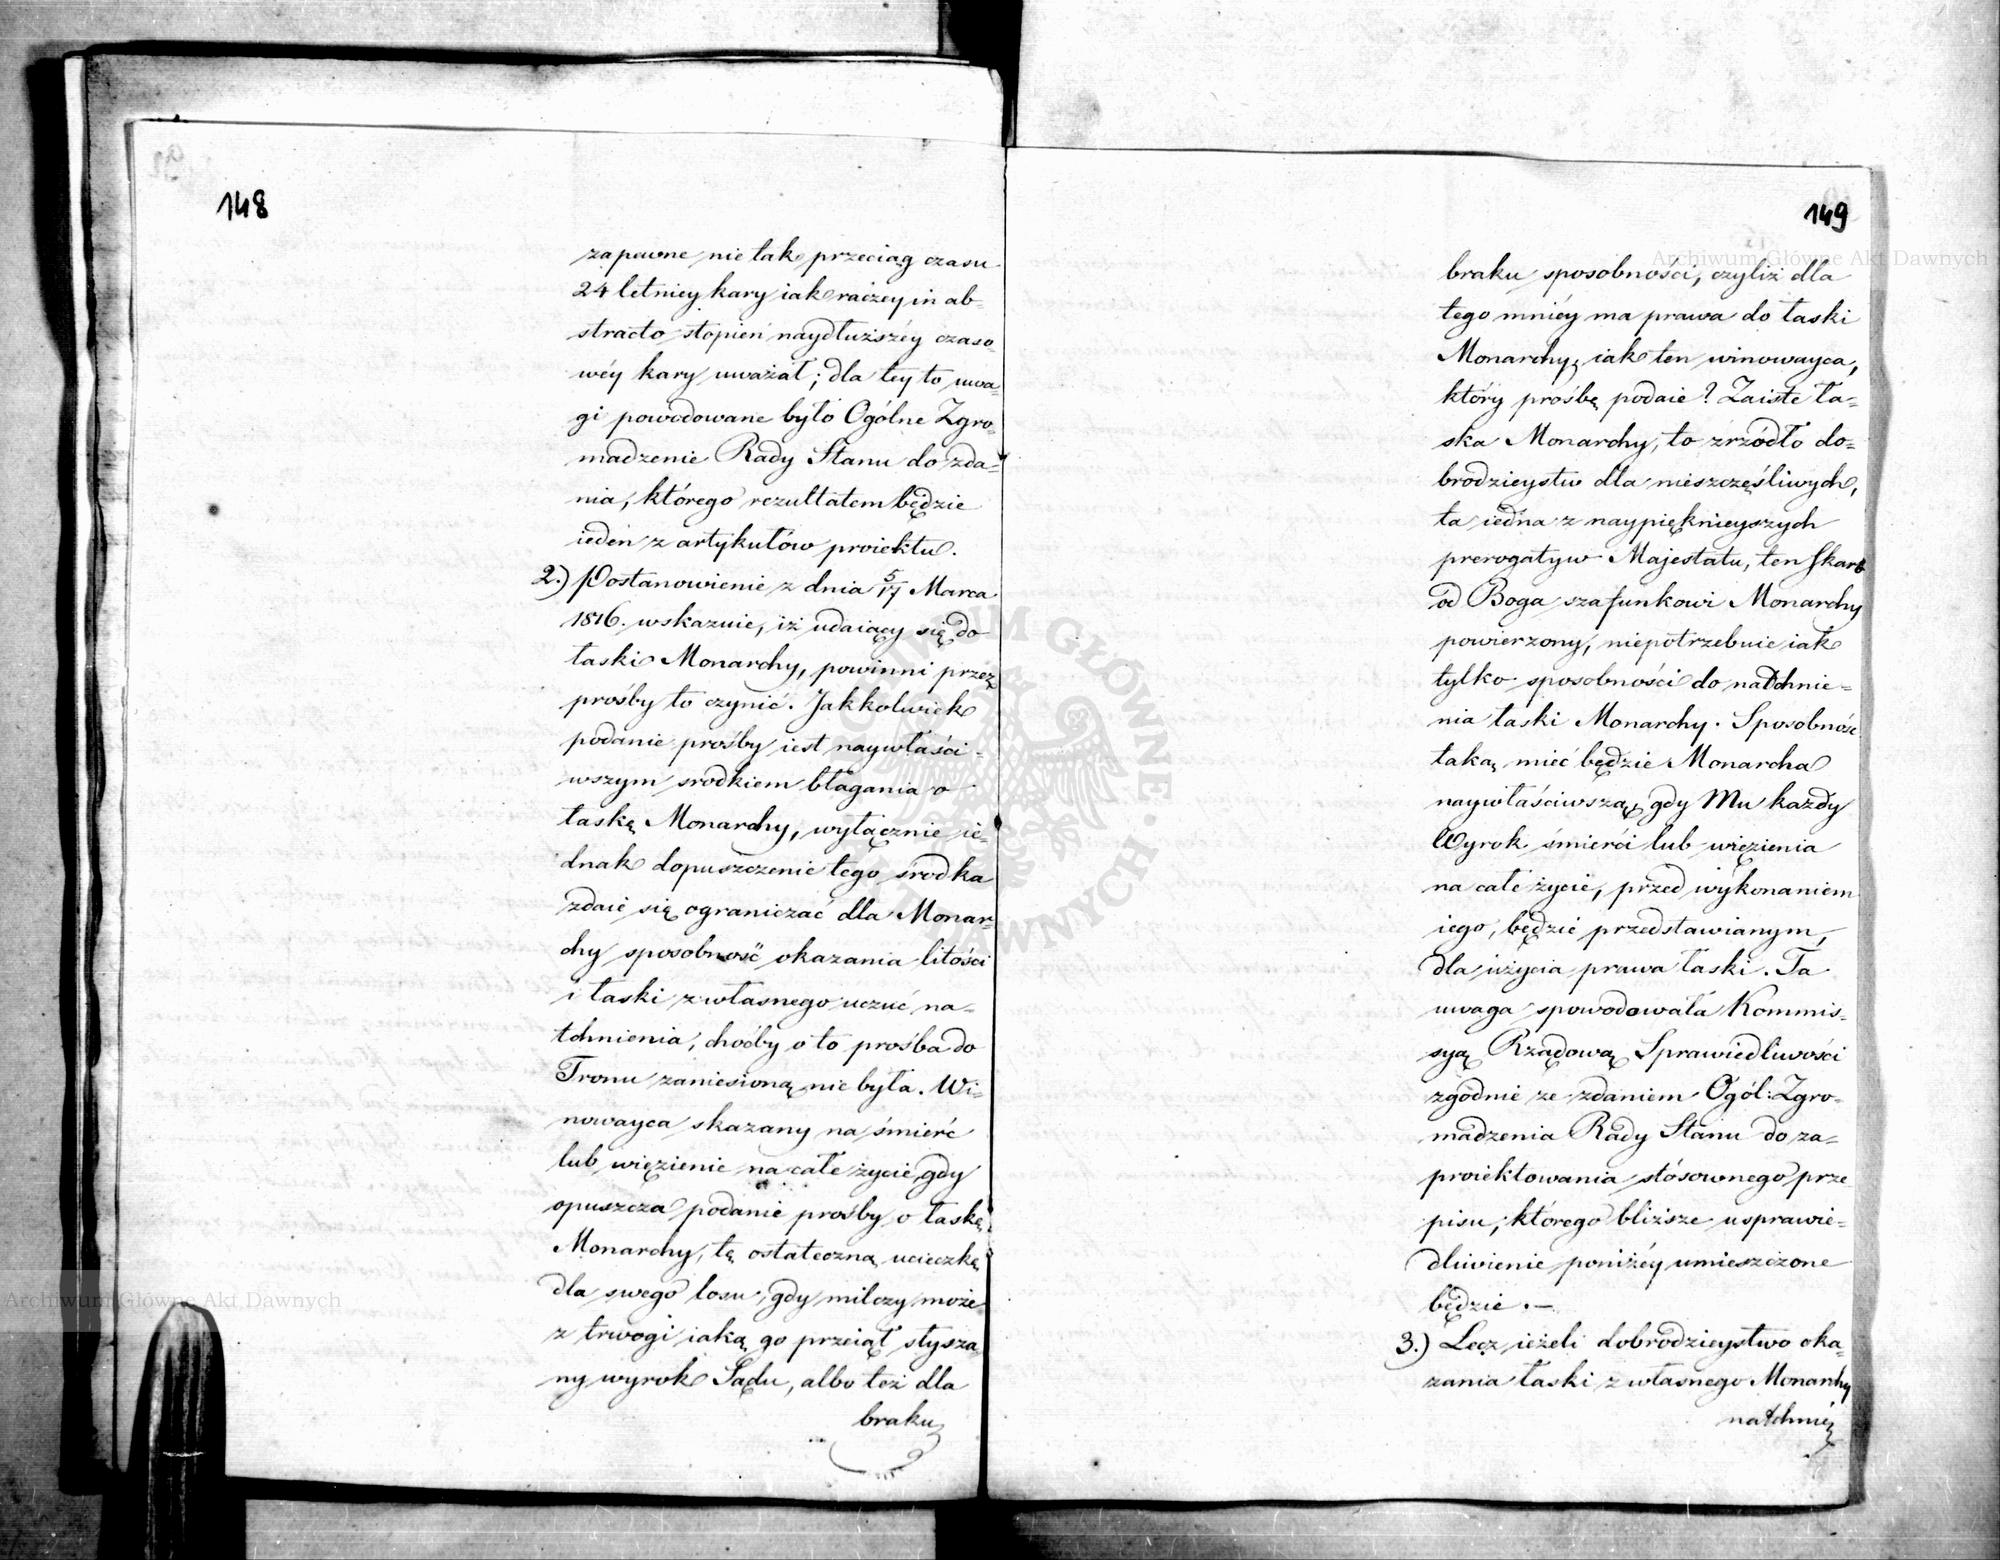 148
zapewne nie tak przeciąg czasu
24 letniey kary iak raczey in ab=
stracto stopień naydłuższéy czaso=
wéy kary uważał; dla tey to uwa=
gi powodowane było Ogólne Zgro=
madzenie Rady Stanu do zda=
nia, którego rezultatem będzie
ieden z artykułów proiektu.
2.) Postanowienie z dnia 5/17 Marca
1816. wskazuie, iż udaiący się do
łaski Monarchy, powinni przez
prośby to czynić. Jakkolwiek
podanie prośby iest naywłaści=
wszym srodkiem błagania o
łaskę Monarchy, wyłącznie ie=
dnak dopuszczenie tego srodka
zdaie się ograniczać dla Monar=
chy sposobność okazania litości
i łaski z własnego uczuć na=
tchnienia, choćby o to prośba do
Tronu zaniesioną nie była. Wi=
nowayca skazany na śmierć
lub więzienie na całe życie, gdy
opuszcza podanie prośby o łaskę
Monarchy, tę ostateczną ucieczkę
dla swego losu, gdy milczy może
z trwogi iaką go przeiął słysza=
ny wyrok Sądu, albo też dla
braku
149
braku sposobności, czyliż dla
tego mniéy ma prawa do łaski
Monarchy, iak ten winowayca,
który prośbę podaie? Zaiste ła=
ska Monarchy, to zrzódło do=
brodzieystw dla nieszczęśliwych,
ta iedna z naypięknieyszych
prerogatyw Majestatu, ten skarb
od Boga szafunkowi Monarchy
powierzony, niepotrzebuie iak
tylko sposobności do natchnie=
nia łaski Monarchy. Sposobność
taką mieć będzie Monarcha
naywłaściwszą, gdy Mu każdy
Wyrok śmierci lub więzienia
na całe życie, przed wykonaniem
iego, będzie przedstawianym,
dla użycia prawa łaski. Ta
uwaga spowodowała Kommis=
syą Rządową Sprawiedliwości
zgodnie ze zdaniem Ogól: Zgro=
madzenia Rady Stanu do za=
proiektowania stósownego prze
pisu, którego bliższe usprawie=
dliwienie poniżéy umieszczone
będzie. —
3.) Lecz ieżeli dobrodzieystwo oka=
zania łaski z własnego Monarchy
natchnie
Archiwum Główne Akt Dawnych
Archiwum Główne Akt Dawnych